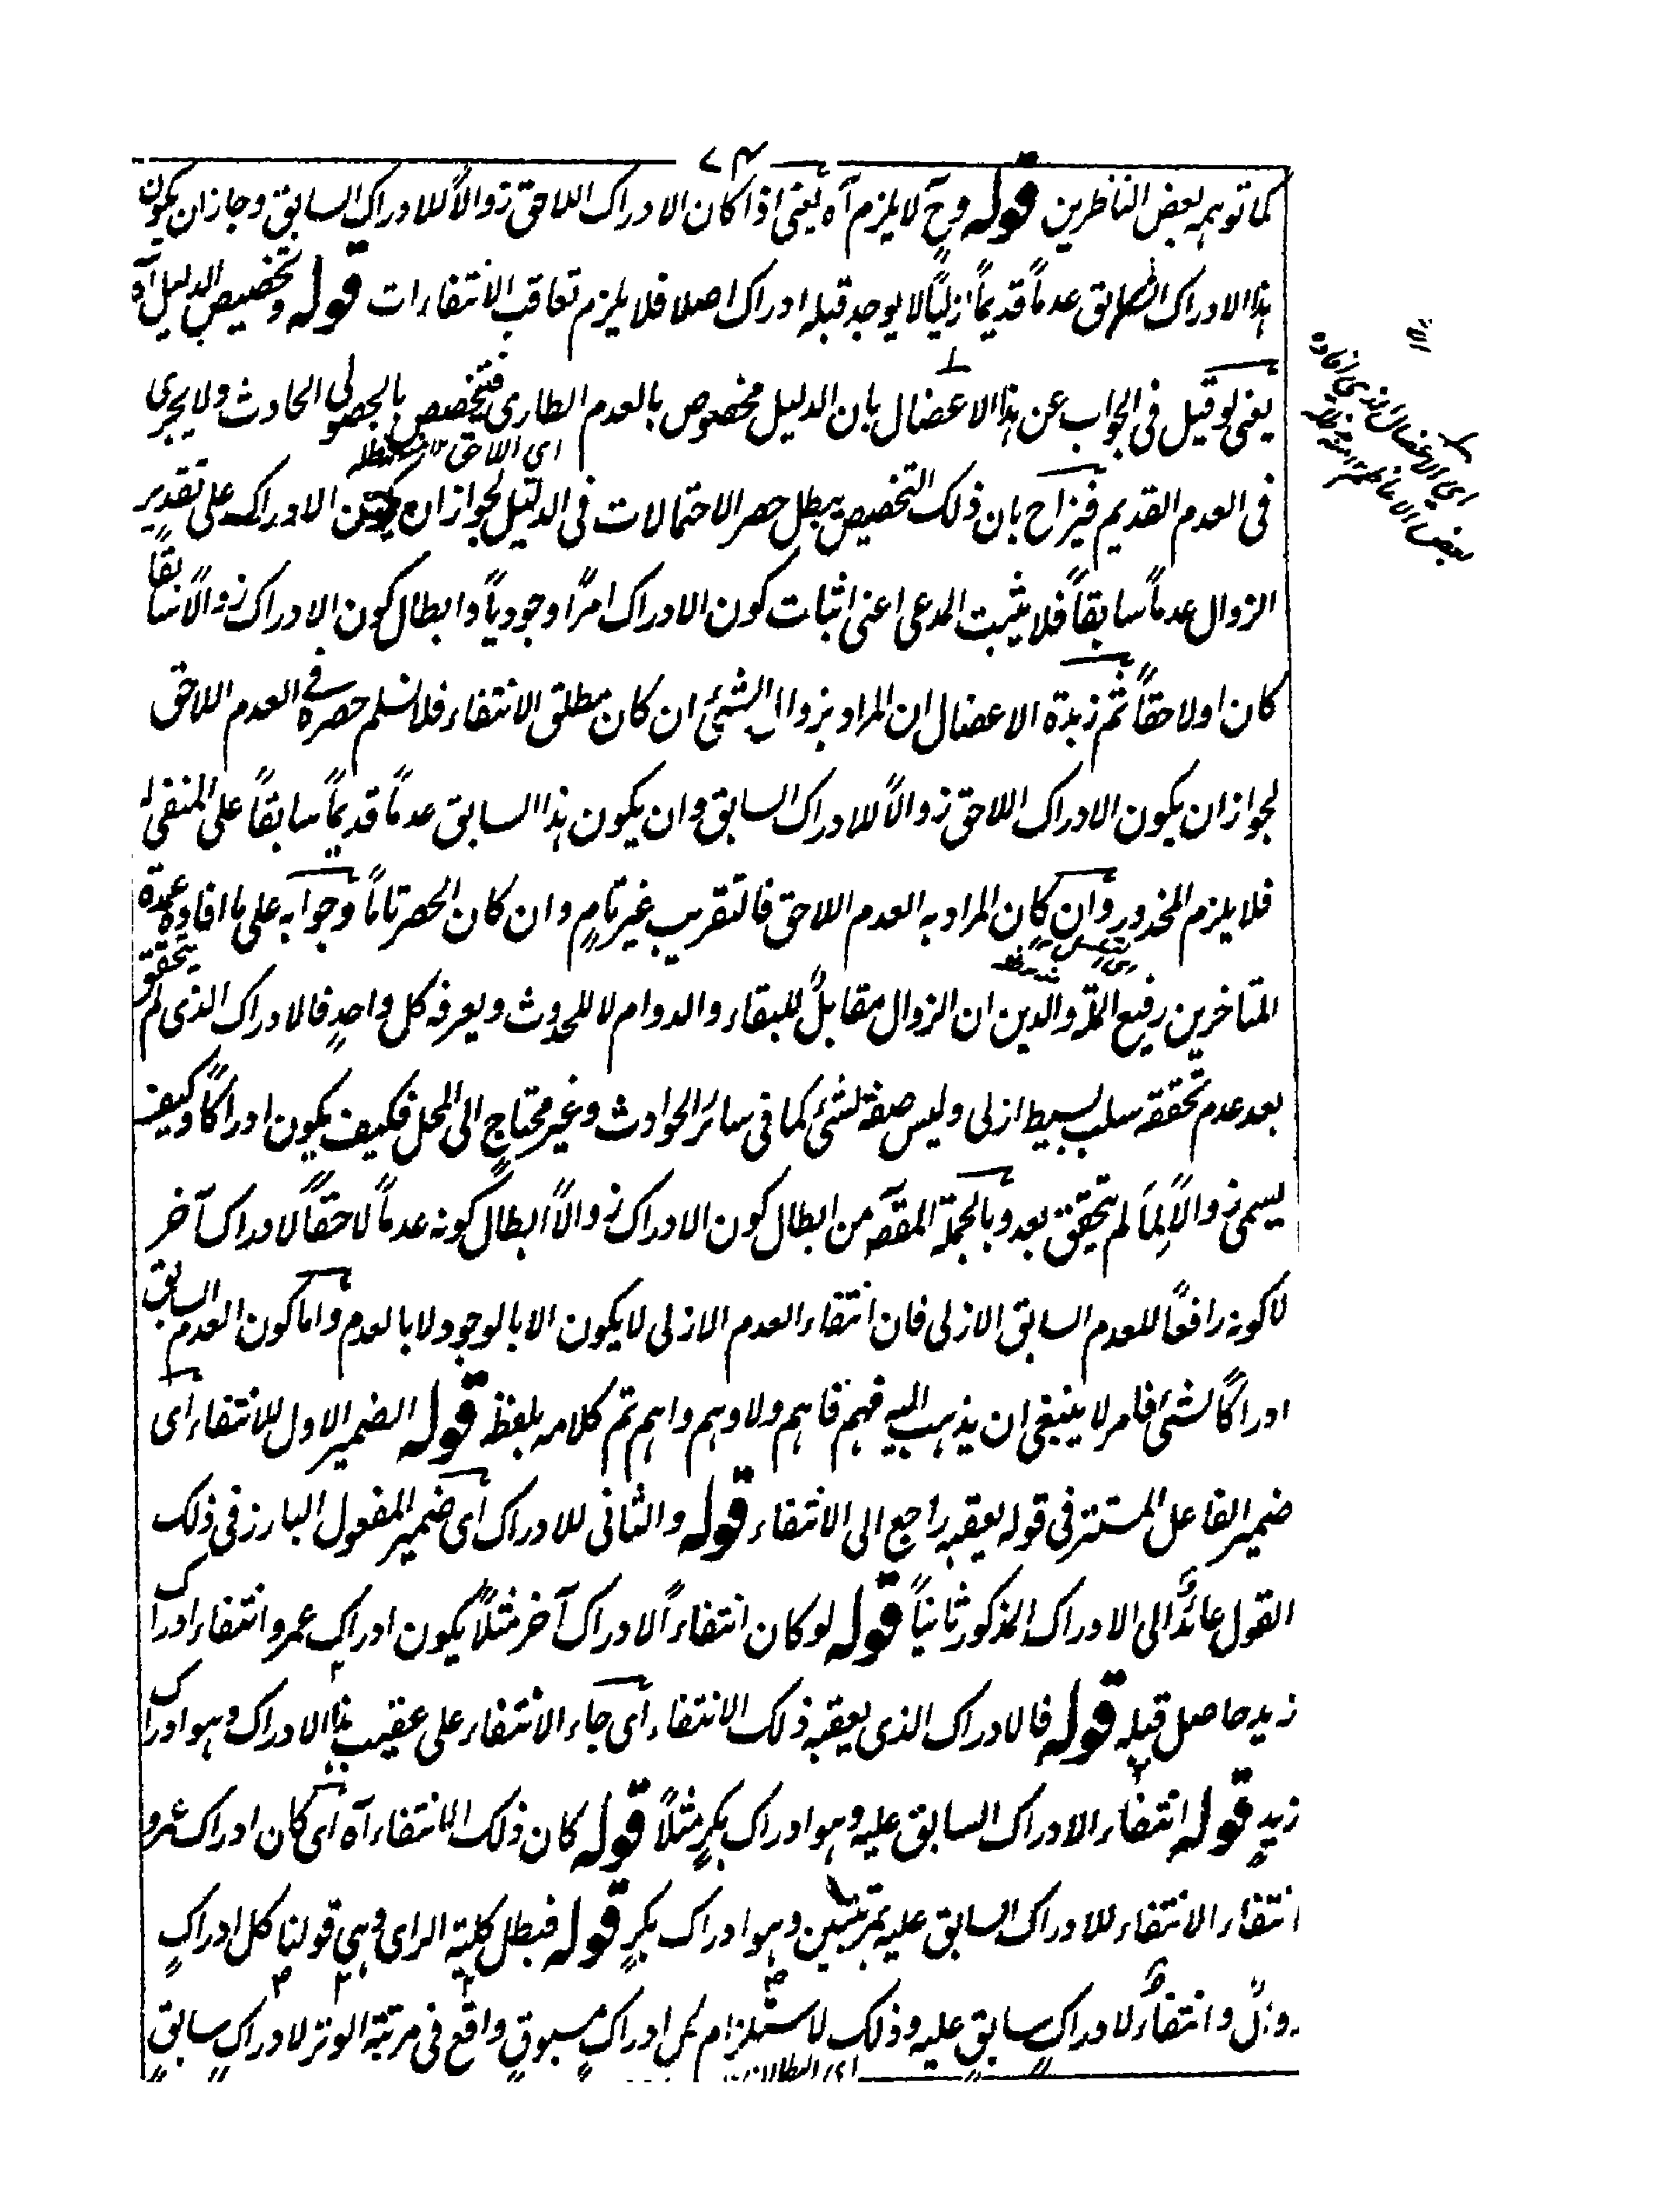 ٧٤
كما توهمه بعض الناظرين قوله وح لا يلزم آه يعنى اذا كان الادراك اللاحق زوالاً للادراك السابق وجاز ان يكون
هذا الادراك السابق عدماً قديماً ازلياً لا يوجد قبله ادراك اصلا فلا يلزم تعاقب الانتفاءات قوله وتخصيص الدليل آه
يعنى لو قيل فى الجواب عن هذا الاعضال بان الدليل مخصوص بالعدم الطارى فيختص بالحصولى الحادث ولا يجرى
اى اللاحق
فى العدم القديم فيزاح بان ذلك التخصيص يبطل حصر الاحتمالات فى الدليل لجواز ان يكون الادراك على تقدير
الزوال عدماً سابقاً فلا يثبت المدعى اعنى اثبات كون الادراك امراً وجودياً وابطال كون الادراك زوالاً سابقاً
كان او لاحقاً ثم زبدة الاعضال ان المراد بزوال الشئ ان كان مطلق الانتفاء فلا نسلم حصره فى العدم اللاحق
لجواز ان يكون الادراك اللاحق زوالاً للادراك السابق وان يكون هذا السابق عدماً قديماً سابقاً على المنفى
فلا يلزم المحذور وان كان المراد به العدم اللاحق فالتقريب غير تام وان كان الحصر تاماً وجوابه على ما افاده عمدة
المتاخرين رفيع الملة والدين ان الزوال مقابل للبقاء والدوام لا للحدوث ويعرفه كل واحدٍ فالادراك الذى لم يتحقق
بعد عدم تحققه سلب بسيط ازلى وليس صفة لشئ كما فى سائر الحوادث وغير محتاج الى المحل فكيف يكون ادراكاً وكيف
يسمى زوالاً لِمَا لم يتحقق بعد وبالجملة المقصد من ابطال كون الادراك زوالاً ابطال كونه عدماً لاحقاً لادراك آخر
لا كونه رافعاً للعدم السابق الازلى فان انتفاء العدم الازلى لا يكون الا بالوجود لا بالعدم واما كون العدم السابق
ادراكاً لشئ فامر لا ينبغى ان يذهب اليه فهم فاهم ولا وهم واهم تم كلامه بلفظه قوله الضمير الاول للانتفاء اى
ضمير الفاعل المستتر فى قوله يعقبه راجع الى الانتفاء قوله والثانى للادراك اى ضمير المفعول البارز فى ذلك
القول عائدٌ الى الادراك المذكور ثانياً قوله لو كان انتفاءً لادراك آخر مثلاً يكون ادراك عمرو انتفاء ادراك
زيد حاصل قبله قوله فالادراك الذى يعقبه ذلك الانتفاء اى جاء الانتفاء على عقيب هذا الادراك وهو ادراك
زيدٍ قوله انتفاء الادراك السابق عليه وهو ادراك بكرٍ مثلاً قوله كان ذلك الانتفاء آه اى كان ادراك عمرو
انتفاء الانتفاء للادراك السابق عليه بمرتبتين وهو ادراك بكرٍ قوله فبطل كلية الراى وهى قولنا كل ادراكٍ
زوالٌ وانتفاءٌ لادراكٍ سابقٍ عليه وذلك لاستلزام كل ادراكٍ مسبوقٍ واقع فى مرتبة الوتر لادراكٍ سابقٍ
اى البطلان
اى الاعضال الذى افاده